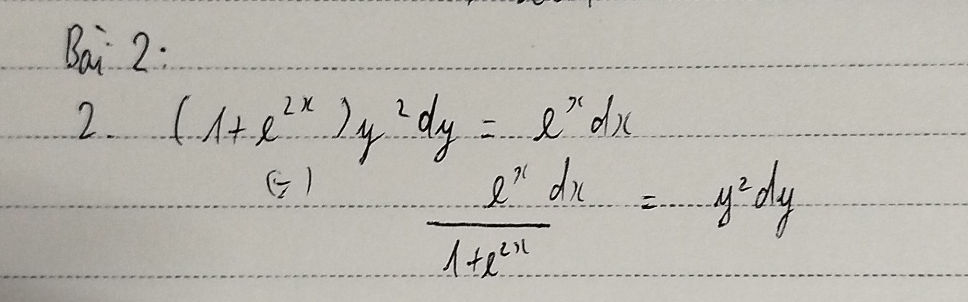 Bài 2:
2. (1+e^{2x})y^2dy = e^x dx
(=) \frac{e^x dx}{1+e^{2x}} = y^2dy